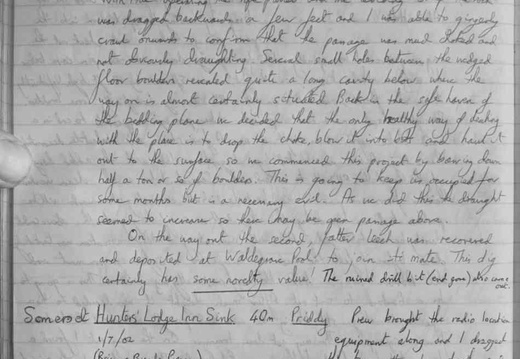 was dragged backwards a few feet and I was able to gingerly
crawl onwards to confirm that the passage was mud choked and
not obviously draughting. Several small holes between the wedged
floor boulders revealed quite a long cavity below where the
way on is almost certainly situated. Back in the safe haven of
the bedding plane we decided that the only healthy way of dealing
with the place is to drop the choke, blow it into bits and haul it
out to the surface so we commenced this project by barring down
half a ton or so of boulders. This is going to keep us occupied for
some months but is a necessary evil. As we did this the draught
seemed to increase so there may be open passage above.
On the way out the second, fatter leech was recovered
and deposited at Waldegrave Pool to join its mate. This dig
certainly has some novelty value! The ruined drill bit (end gone) also came
out.
Somerset Hunters' Lodge Inn Sink 40m Priddy Prew brought the radio location
1/7/02 equipment along and I dragged